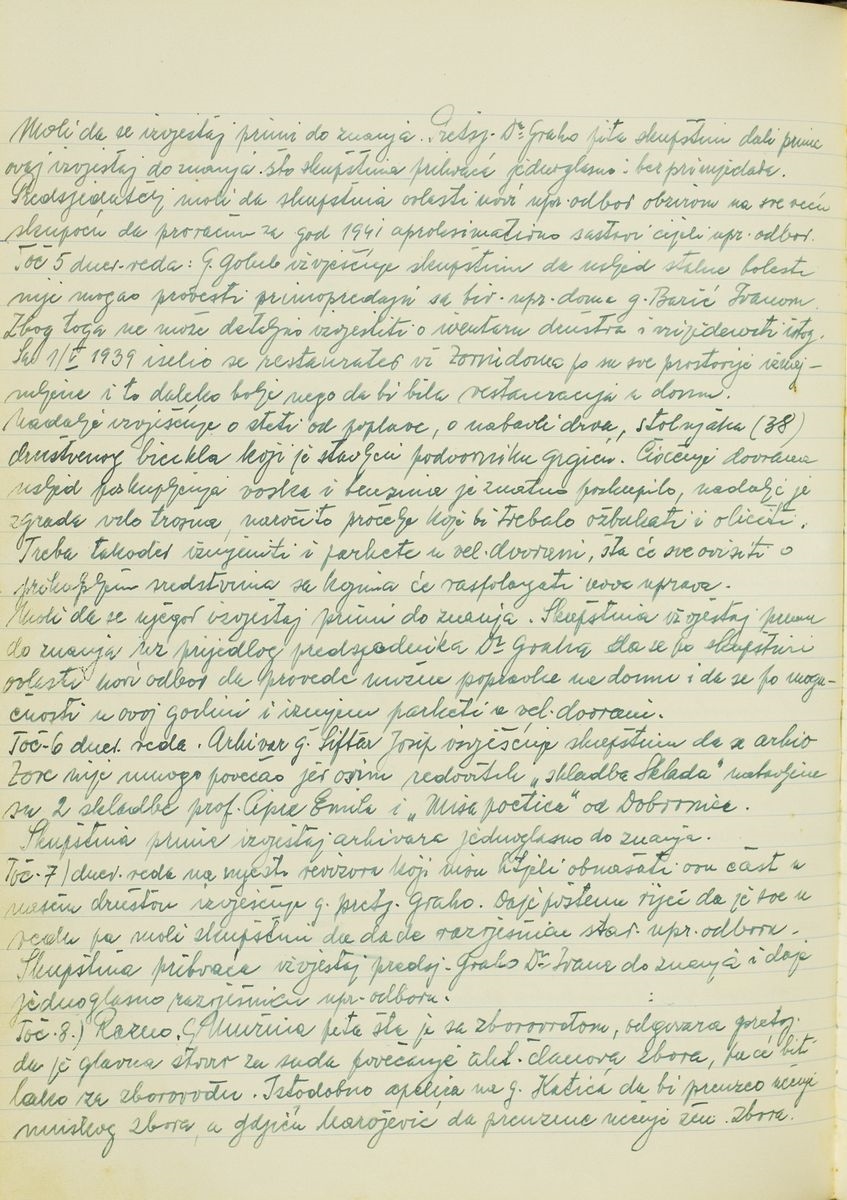 Moli da se izvještaj primi do znanja. Pretsj. Dr. Graho pita skupštinu dali prima
ovaj izvještaj do znanja što skupština prihvaća jednoglasno i bez primjedaba.
Predsjedatelj moli da skupština ovlasti novi upr. odbor obzirom na sve veću
skupoću da proračun za god 1941 aproksimativno sastavi cijeli upr. odbor.
Toč 5 dnev. reda: G. Golub izvješćuje skupštinu da usljed stalne bolesti
nije mogao provesti primopredaju sa biv. upr. doma g. Barić Ivanom.
Zbog toga ne može detaljno izvjestiti o inventaru društva i vrijednosti istog.
Sa 1/V 1939 iselio se restaurater iz doma pa su sve prostorije iznaj-
mljene i to daleko bolje nego da bi bila restauracija u domu.
Nadalje izvješćuje o šteti od poplave, o nabavki drva, stolnjaka (38)
društvenog bicikla koji je stavljen podvorniku Grgiću. Čišćenje dvorana
usljed poskupljenja voska i benzina je znatno poskupilo, nadalje je
zgrada vrlo trošna, naročito pročelje koje bi trebalo ožbukati i oličiti.
Treba također izmjeniti i parkete u vel. dvorani, šta će sve ovisiti o
sredstvima sa kojima će raspolagati nova uprava.
Moli da se njegov izvještaj primi do znanja. Skupština izvještaj prima
do znanja uz prijedlog predsjednika Dr Graha da se po skupštini
ovlasti novi odbor da provede nužne popravke na domu i da se po mogu-
ćnosti u ovoj godini i izmjene parketi u vel. dvorani.
Toč-6 dnev. reda. Arhivar g. Šiftar Josip izvješćuje skupštinu da se arhiv
Zore nije mnogo povećao jer osim redovitih „skladba Sklada“ nabavljene
su 2 skladbe prof. Cipra Emila i „Misa poetica“ od Dobronića.
Skupština prima izvještaj arhivara jednoglasno do znanja.
Toč. 7) dnev. reda na mjesto revizora koji nisu htjeli obnašati ovu čast u
našem društvu izvješćuje g. pretsj. Graho. Daje poštenu riječ da je sve u
redu pa moli skupštinu da dade razrješnicu star. upr. odboru.
Skupština prihvaća izvještaj predsj. Graho Dr. Ivana do znanja i daje
jednoglasno razrješnicu upr. odboru.
Toč. 8.) Razno. G. pita šta je sa zborovođom, odgovara pretsj.
da je glavna stvar za sada povećanje akt. članova zbora, pa će biti
lako za zborovođu. Istodobno apelira na g. Katića da bi preuzeo učenje
muškog zbora, a gdjicu Marojević da preuzme učenje žen. zbora.